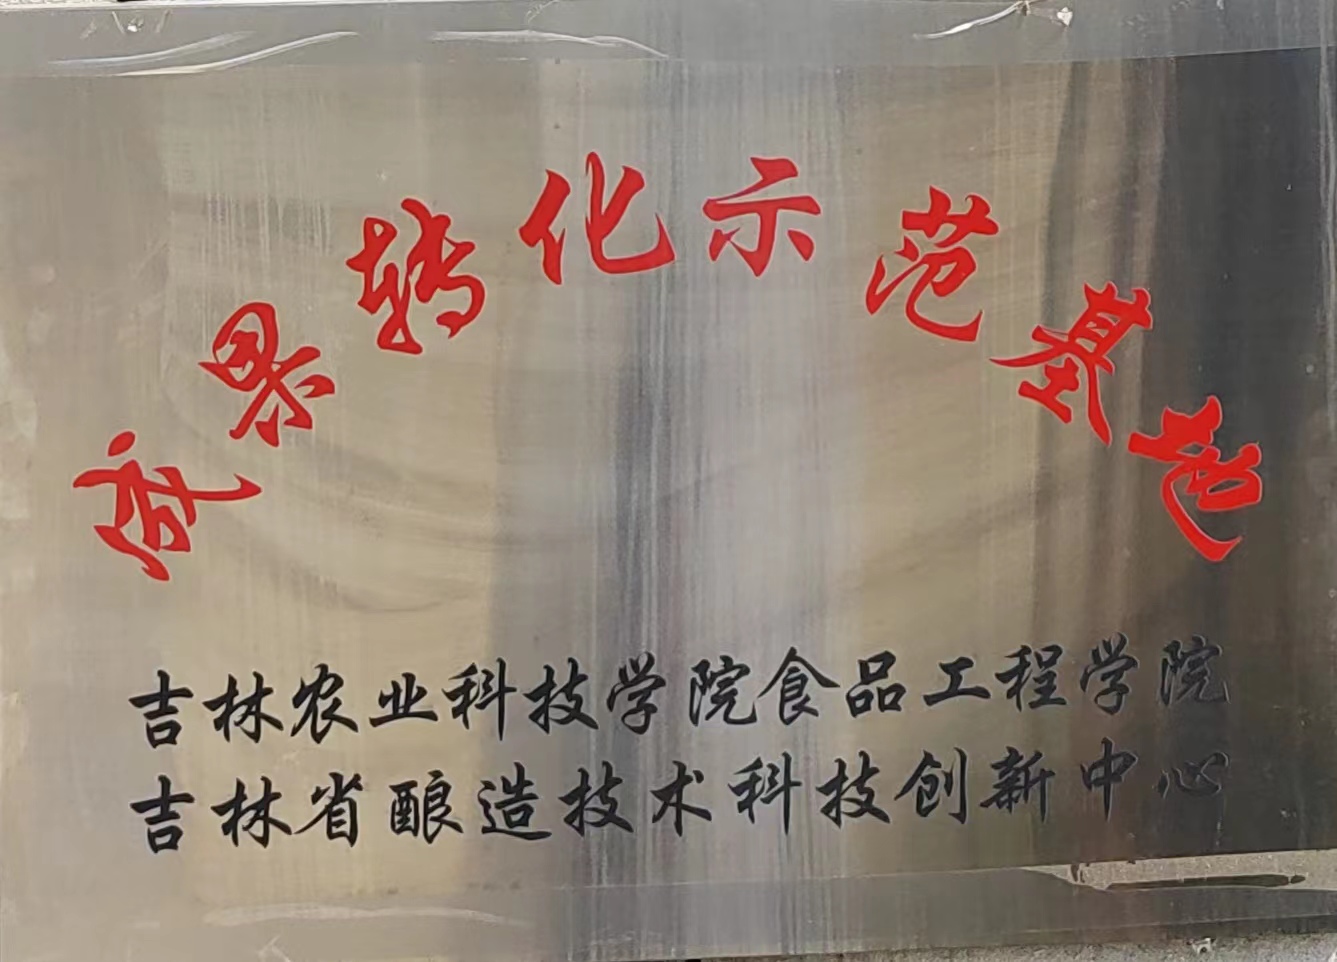 成果转化示范基地
吉林农业科技学院食品工程学院
吉林省酿造技术科技创新中心